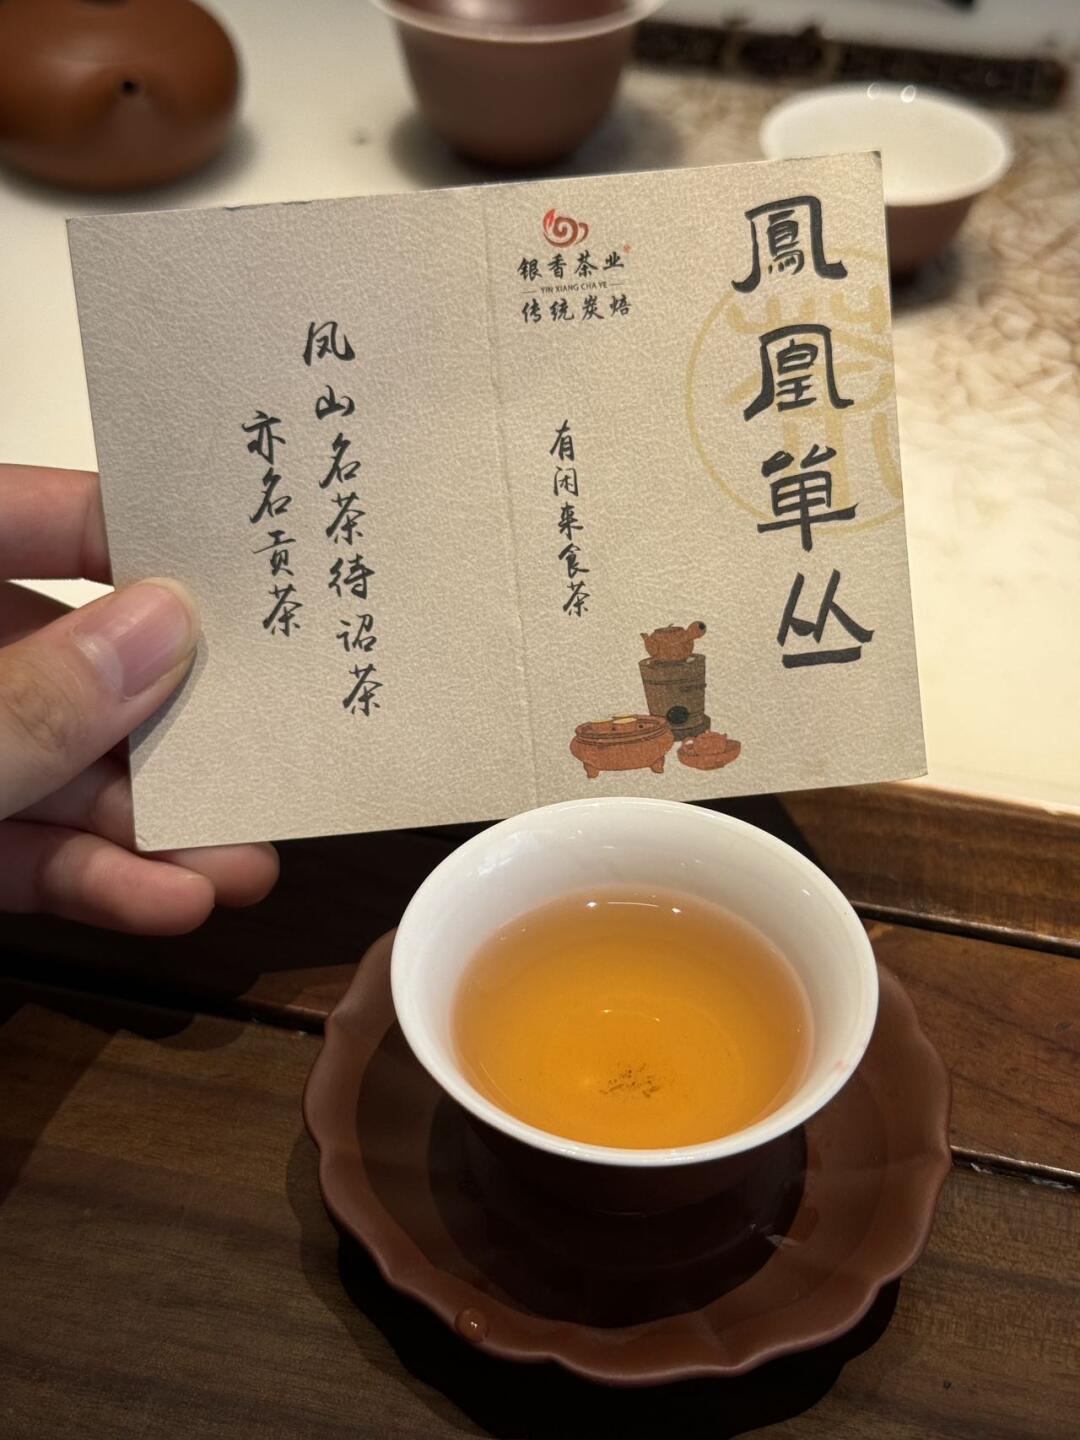 鳳凰单丛
银香茶业
YIN XIANG CHA YE
传统炭焙
有闲来食茶
凤山名茶待诏茶
亦名贡茶